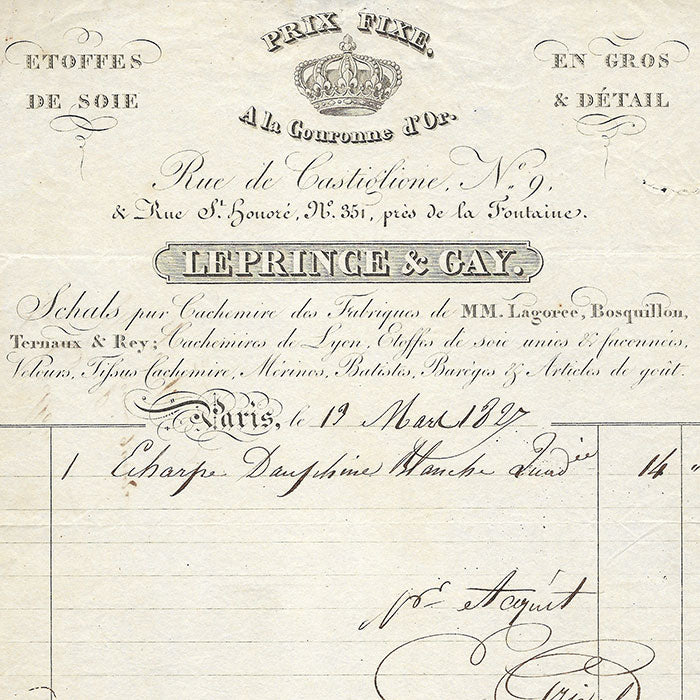 PRIX FIXE.
ETOFFES DE SOIE
EN GROS & DÉTAIL
A la Couronne d'Or.
Rue de Castiglione, Nº 9,
& Rue St. Honoré, Nº 351, près de la Fontaine.
LEPRINCE & GAY.
Schals pur Cachemire des Fabriques de MM. Lagorce, Bosquillon,
Ternaux & Rey; Cachemires de Lyon, Etoffes de soie unies & façonnées,
Velours, Tissus Cachemire, Mérinos, Batistes, Barèges & Articles de goût.
Paris, le 19 Mars 1827
1 Echarpe Dauphine Blanche 14 "
pr acquit